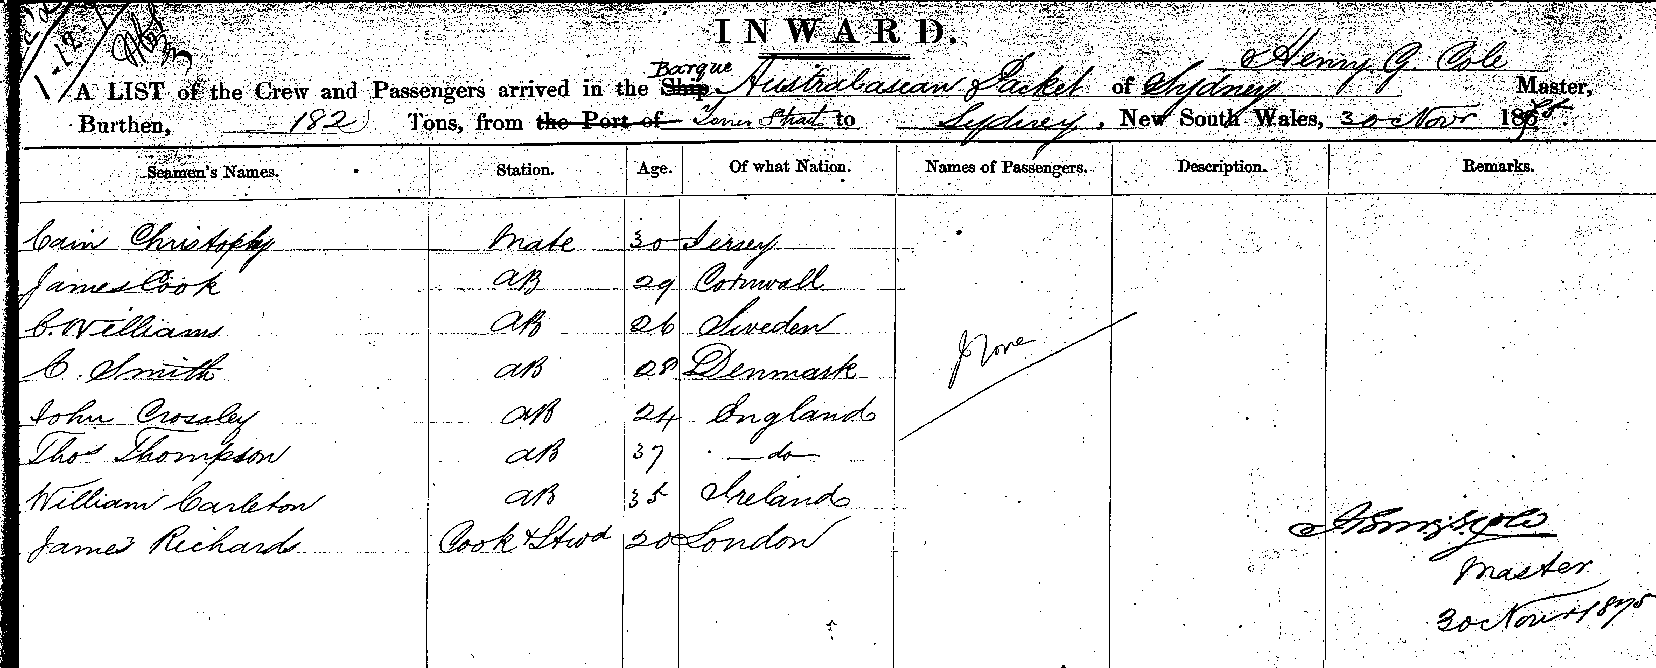 INWARD.
A LIST of the Crew and Passengers arrived in the Ship Barque Australasian Packet of Sydney Henry G. Cole Master,
Burthen, 182 Tons, from the Port of Torres Strait to Sydney, New South Wales, 30 Novr 1875.
Seamen's Names. Station. Age. Of what Nation. Names of Passengers. Description. Remarks.
Cain Christophy Mate 30 Jersey
James Cook AB 29 Cornwall
C. Williams AB 26 Sweden
C. Smith AB 28 Denmark
None
John Crossley AB 24 England
Thos Thompson AB 37 — do —
William Carleton AB 35 Ireland
James Richards Cook & Stwd 20 London
Master
30 Novr 1875